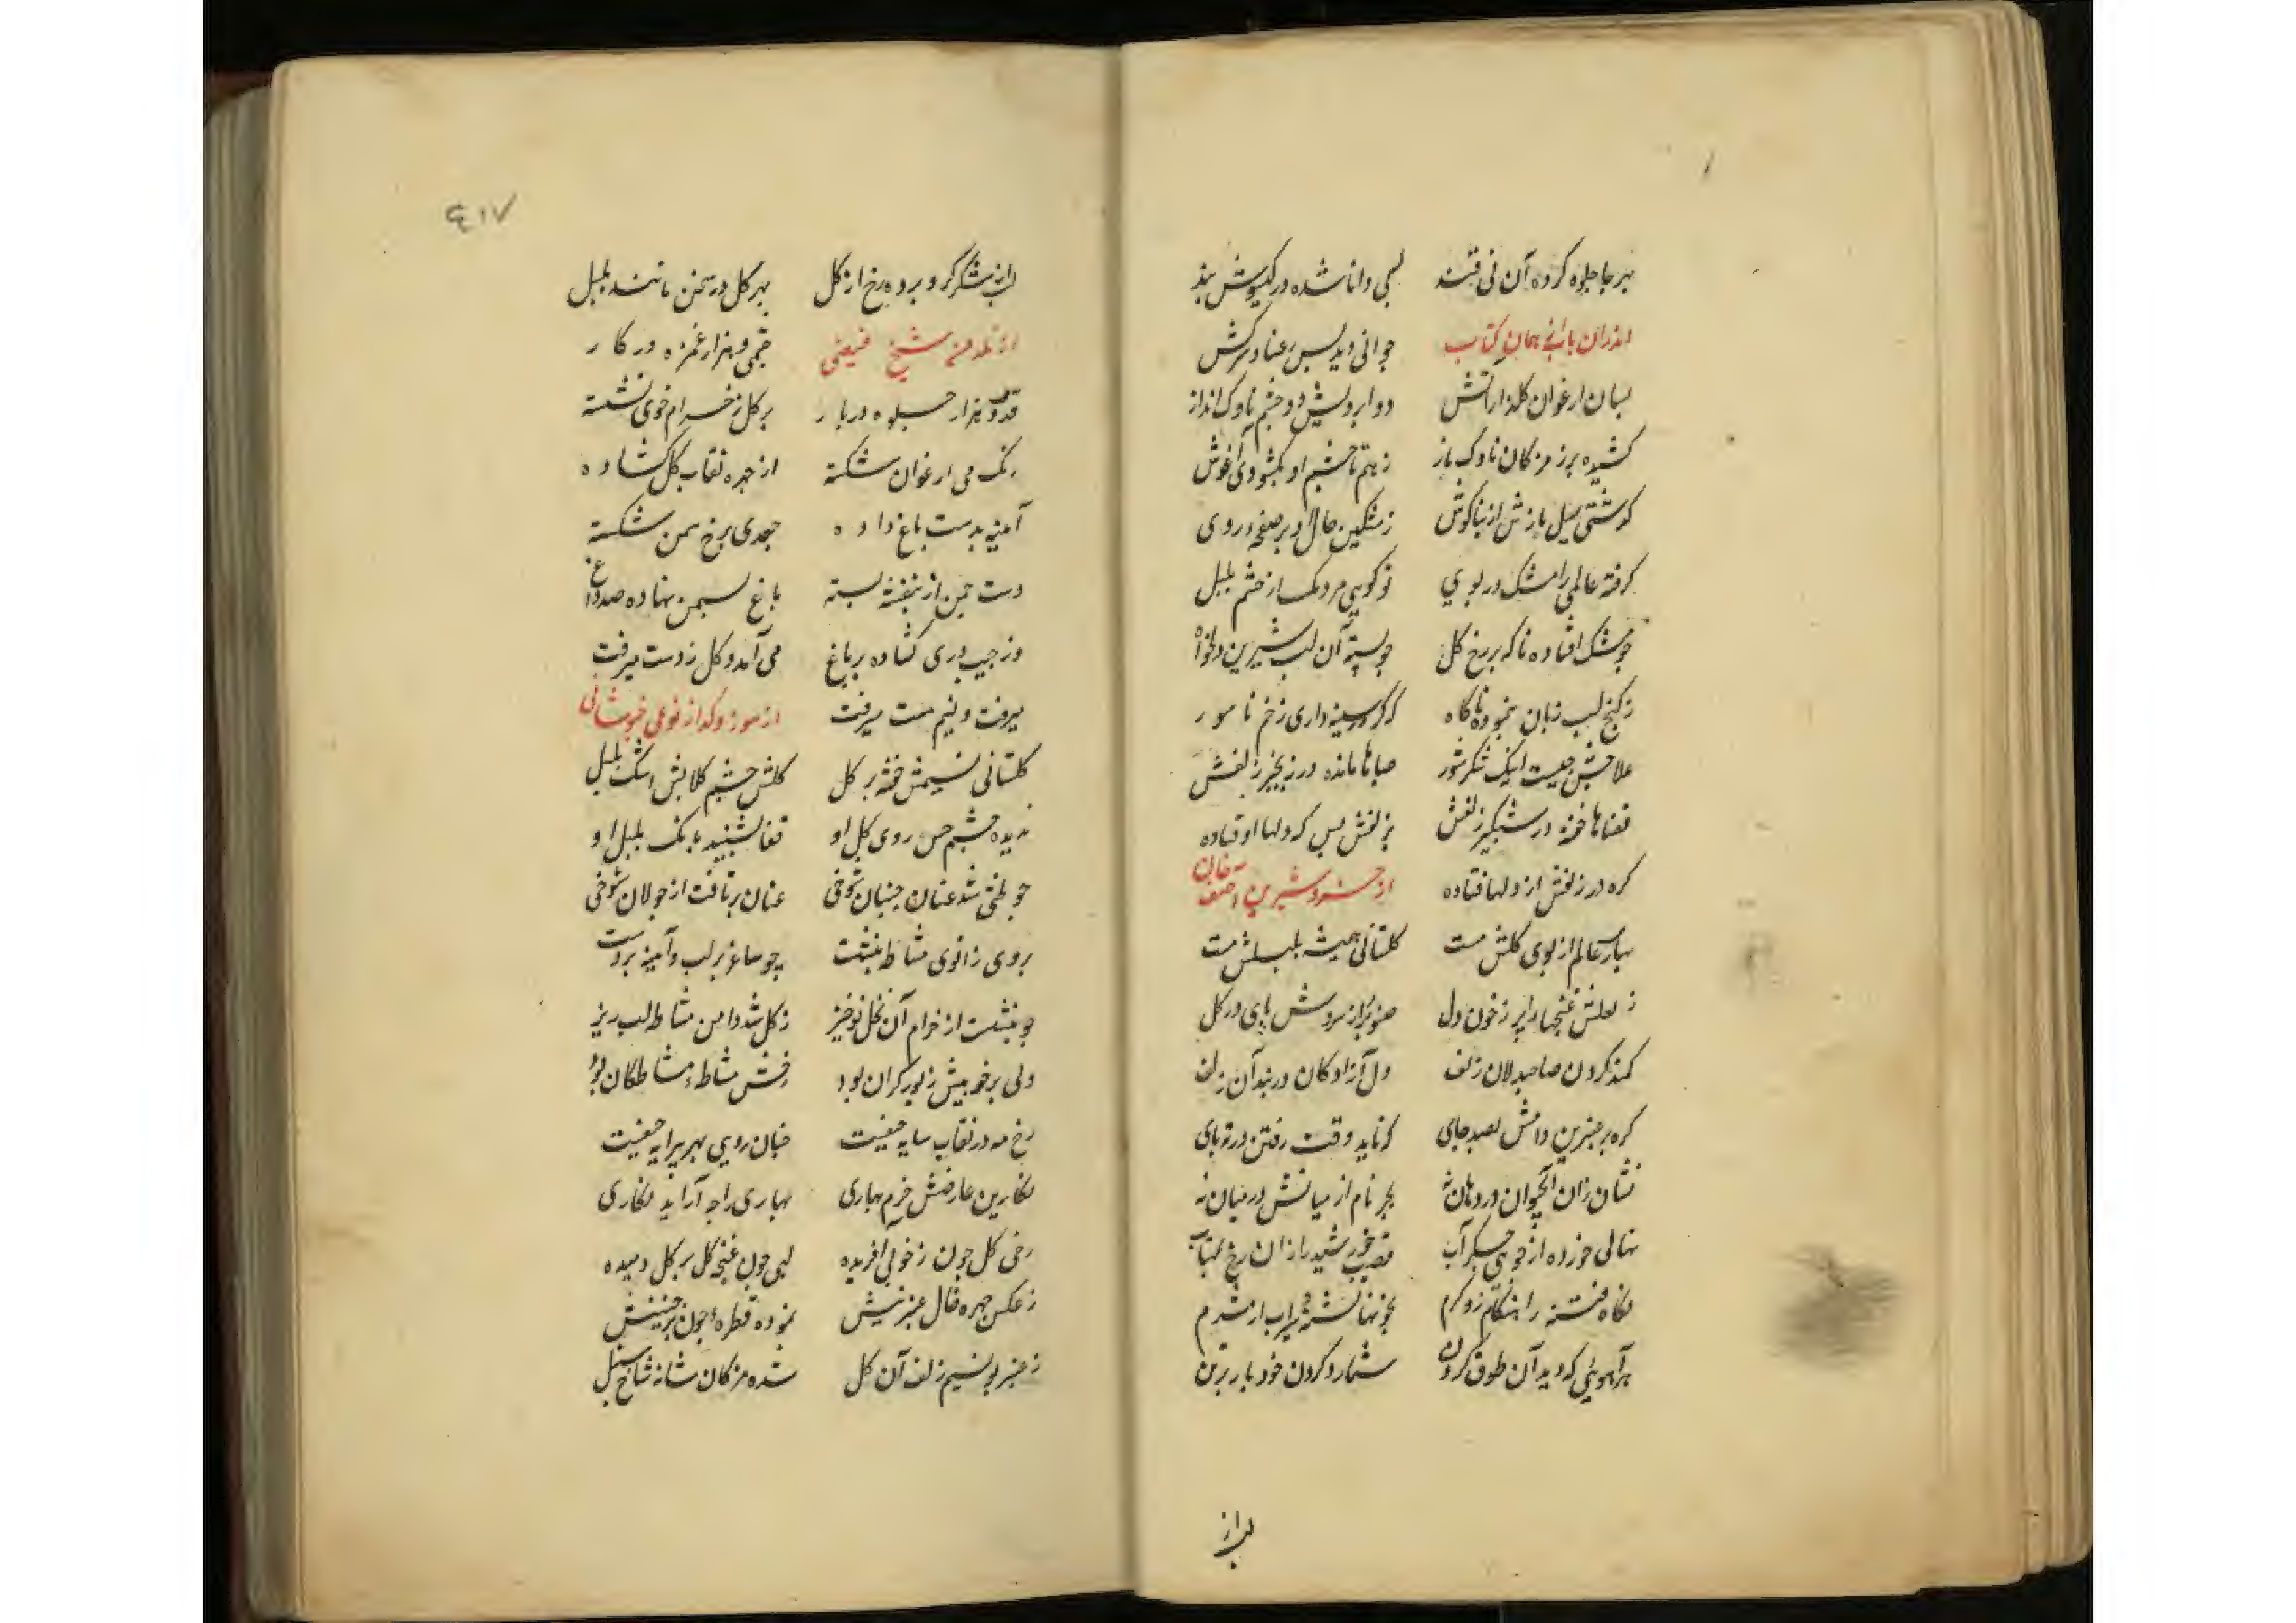 بهر جا جلوه کرده آن نی قند لبی وانا شده در کیسوش بند
اندران بابانی همان کتاب جوانی دید بس رعنا و سرکش
بسان ارغوان کلنار آتش دو ابرویش دو چشم ناوک انداز
کشیده بر ز مژکان ناوک باز ز بهم تا چشم او بکشودی آغوش
کذشتی میل بازش از بناکوش ز مشکین خال او بر صفحه روی
کرفته عالمی را مشک در بوی تو کویی مردمک از چشم بلبل
چو مشک افتاده ناکه بر رخ کل چو پسته آن لب شیرین دلخواه
ز کنج لب زبان بنموده ناکاه که کر در سینه داری زخم ناسور
علاجش چیست اینک شکر شور صباها مانده در زنجیر زلفش
قضاها خفته در شبکیر زلفش بزلفش بس که دلها اوفتاده
کره در زلفش از دلها فتاده از خسرو شیرین آصف خان
بهار عالم از بوی کلش مست کلستانی همیشه بلبلش مست
ز لعلش غنچها را پر ز خون دل صنوبر از سروش پای در کل
کمند کردن صاحبدلان زلف دل آزادکان در بند آن زلف
کره بر عنبرین دامش بصد جای که ناید وقت رفتن در ته پای
نشان زان آب حیوان در دهان نه بجز نام از میانش در میان نه
نهالی خورده از جوی جکر آب نصیب خورشید را زان رخ مهتاب
نکاه فتنه را هنکام زو کرم بخونها تشنه و سیراب از شرم
هر آهویی که دید آن طوق کردن شمارد کردن خود بار بر تن
لب از
٤١٧
لب از شکر کرو برده رخ از کل بهر کل در سخن مانند بلبل
از نلدمن شیخ فیضی چشمی و هزار غمزه در کار
قدی و هزار جلوه در بار بر کل ز خرام خوی نشسته
رنک می ارغوان شکسته از چهره نقاب کل کشاده
آینه بدست باغ داده جعدی برخ سمن شکسته
دست چمن از بنفشه بسته باغ سمن نهاده صد داغ
وز جیب دری کشاده بر باغ می آمد و کل ز دست میرفت
میرفت و نیم مست میرفت از سوز و کداز نوعی خبوشانی
کلستانی نسیمش خفته بر کل کلش چشم کلابش اشک بلبل
ندیده چشم حس روی کل او قفا نشنیده بانک بلبل او
چو لختی شد عنان جنبان شوخی عنان برتافت از جولان شوخی
بروی زانوی مشاطه بنشست چو ساغر بر لب و آینه بر دست
چو بنشست از خرام آن نخل نوخیز ز کل شد دامن مشاطه لبریز
ولی بر خوبیش زیور کران بود رخش مشاطهٔ مشاطکان بود
رخ مه در نقاب سایه حیفست چنان رویی بهر پیرایه حیفست
نکارین عارضش خرم بهاری بهاری را چه آراید نکاری
رخی کل چون ز خوبی آفریده لبی چون غنچه کل بر کل دمیده
ز عکس چهره خال عنبرینش نموده قطرهٔ خون بر جبینش
ز عنبر بو نسیم زلف آن کل شده مژکان شانه شاخ سنبل